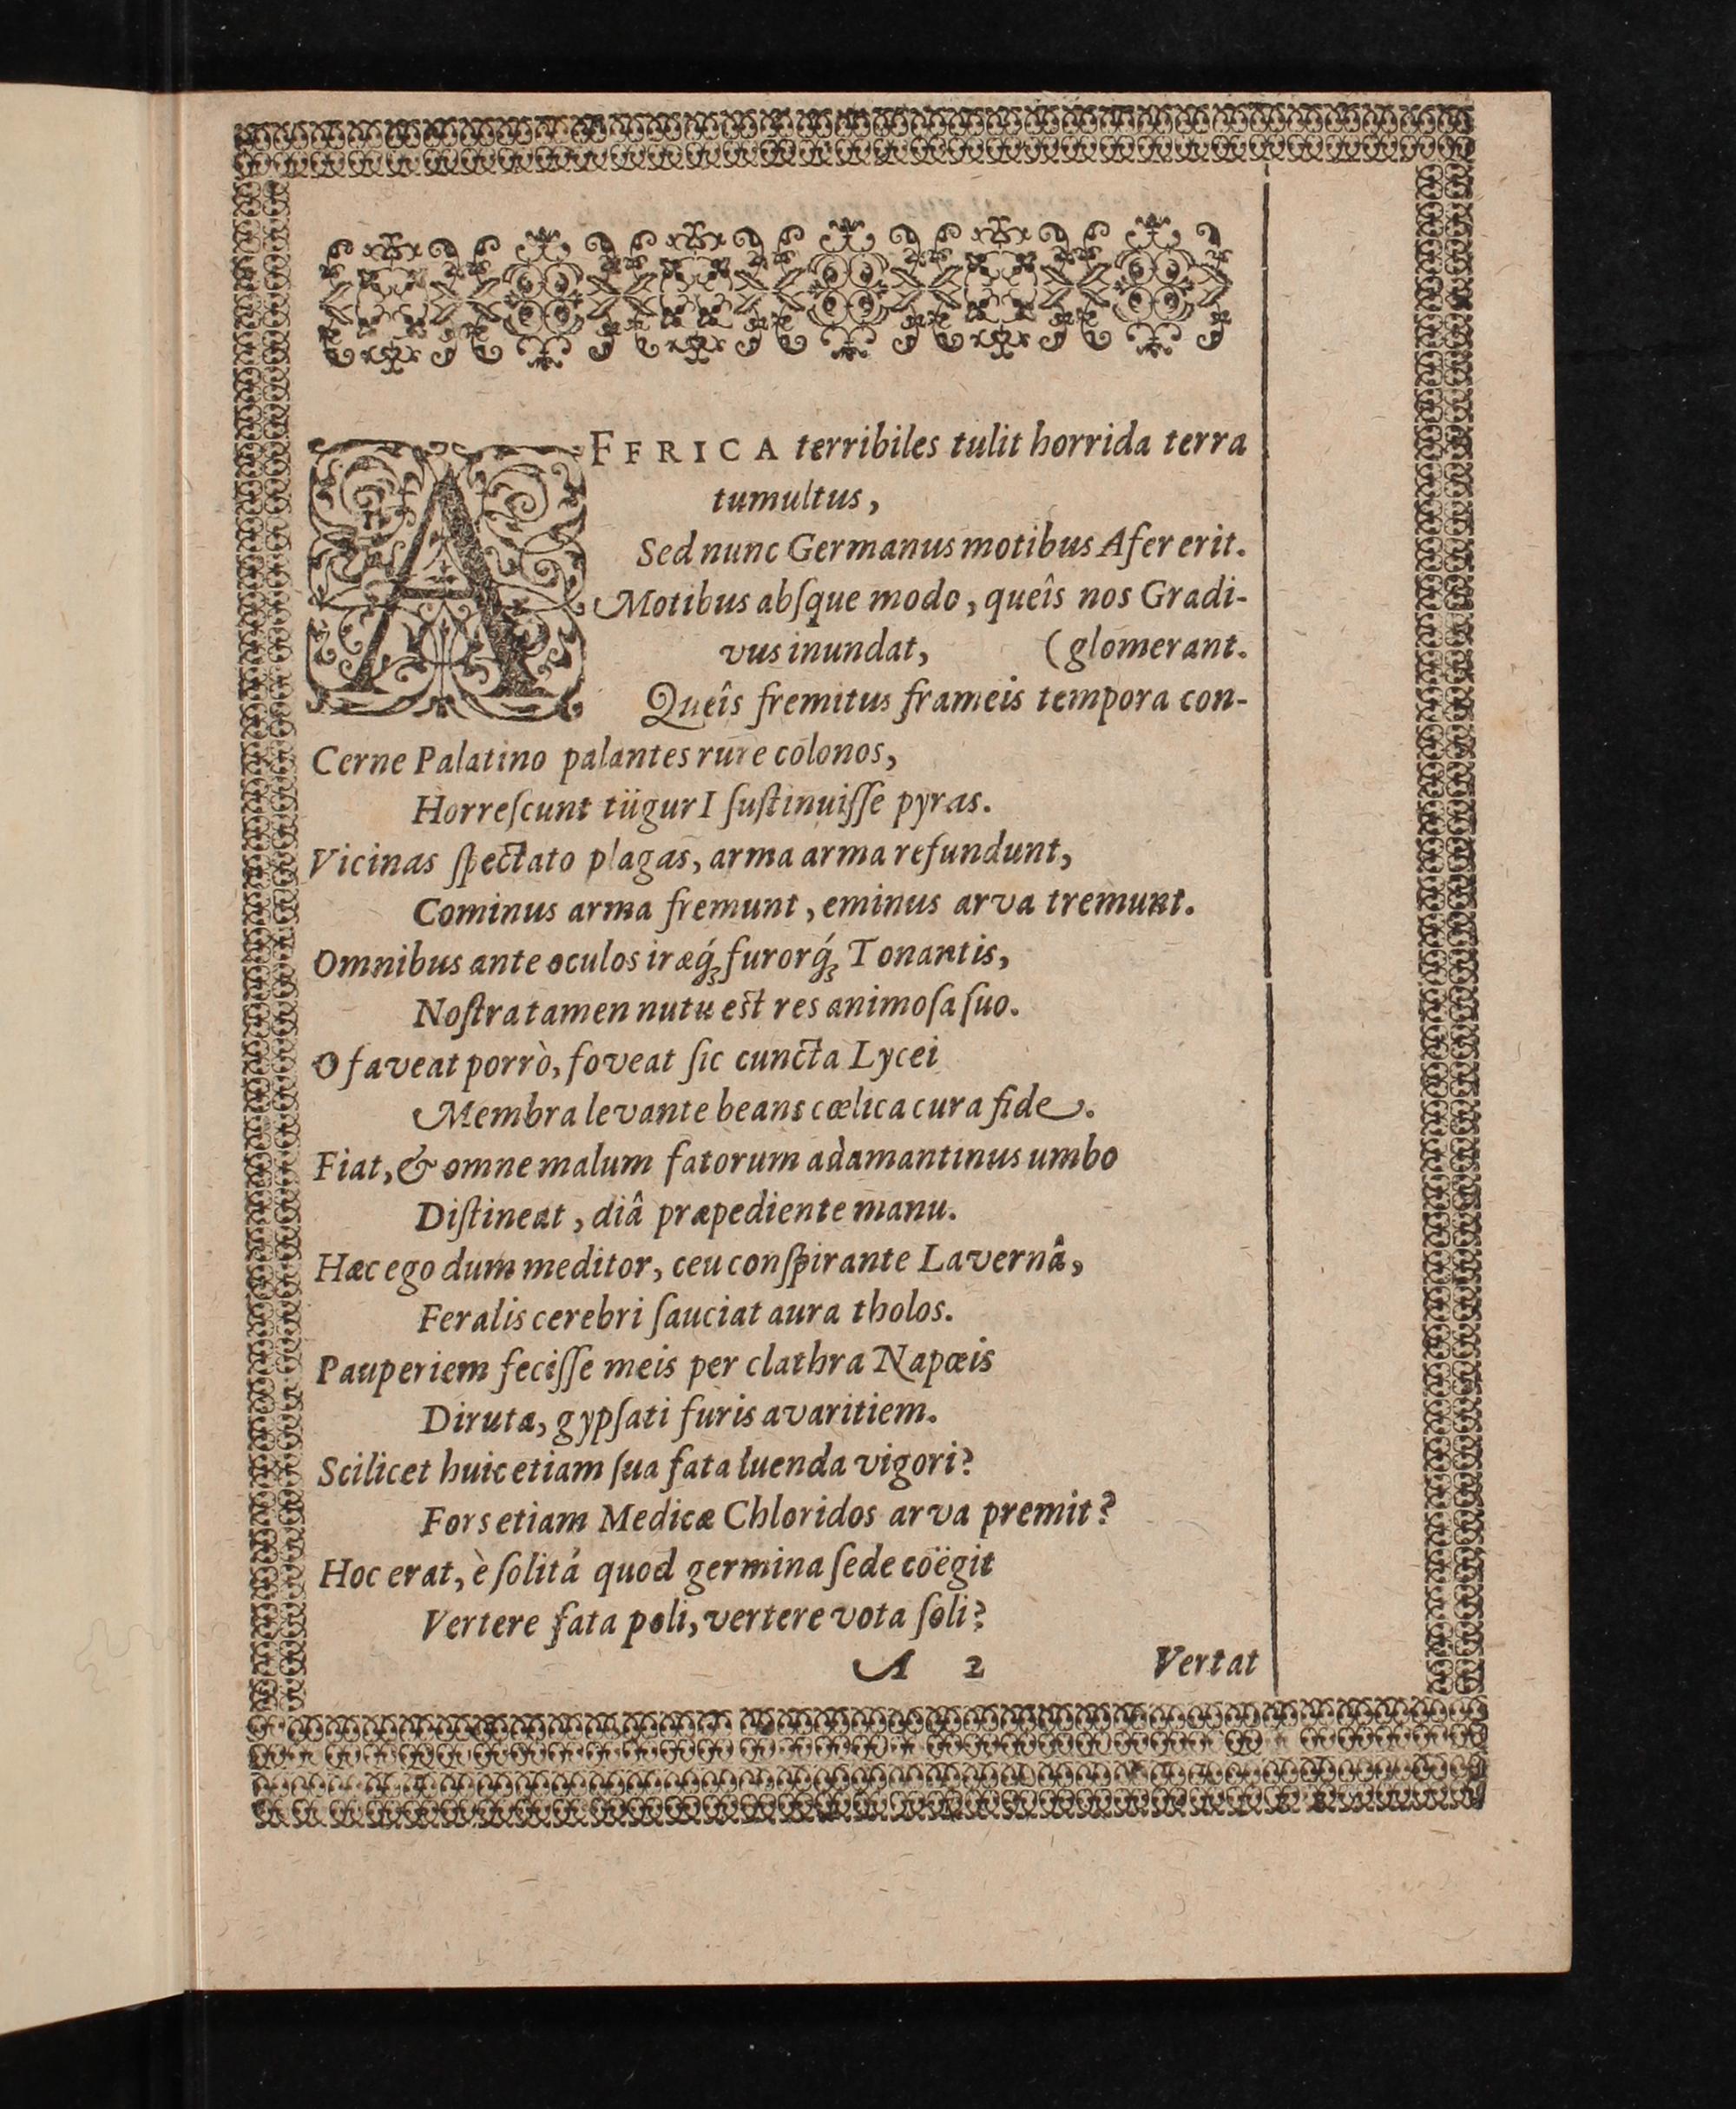 AFFRICA terribiles tulit horrida terra
tumultus,
Sed nunc Germanus motibus Afer erit.
Motibus abſque modo, queîs nos Gradi-
vus inundat, (glomerant.
Queîs fremitus frameis tempora con-
Cerne Palatino palantes rure colonos,
Horreſcunt tügurI ſuſtinuiſſe pyras.
Vicinas ſpectato plagas, arma arma refundunt,
Cominus arma fremunt, eminus arva tremunt.
Omnibus ante oculos iræq́ꝫ furorq́ꝫ Tonantis,
Noſtra tamen nutu est res animoſa ſuo.
O faveat porrò, foveat ſic cuncta Lycei
Membra levante beans cœlica cura fide.
Fiat, & omne malum fatorum adamantinus umbo
Diſtineat, diâ præpediente manu.
Hæc ego dum meditor, ceu conſpirante Lavernâ,
Feralis cerebri ſauciat aura tholos.
Pauperiem feciſſe meis per clathra Napœis
Diruta, gypſati furis avaritiem.
Scilicet huic etiam ſua fata luenda vigori?
Fors etiam Medicæ Chloridos arva premit?
Hoc erat, è ſolitá quod germina ſede coëgit
Vertere fata poli, vertere vota ſoli?
A 2 Vertat